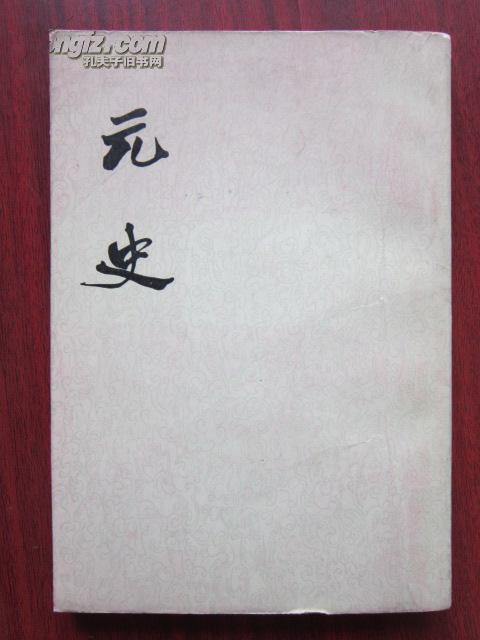 ngiz.com
孔夫子旧书网
元史